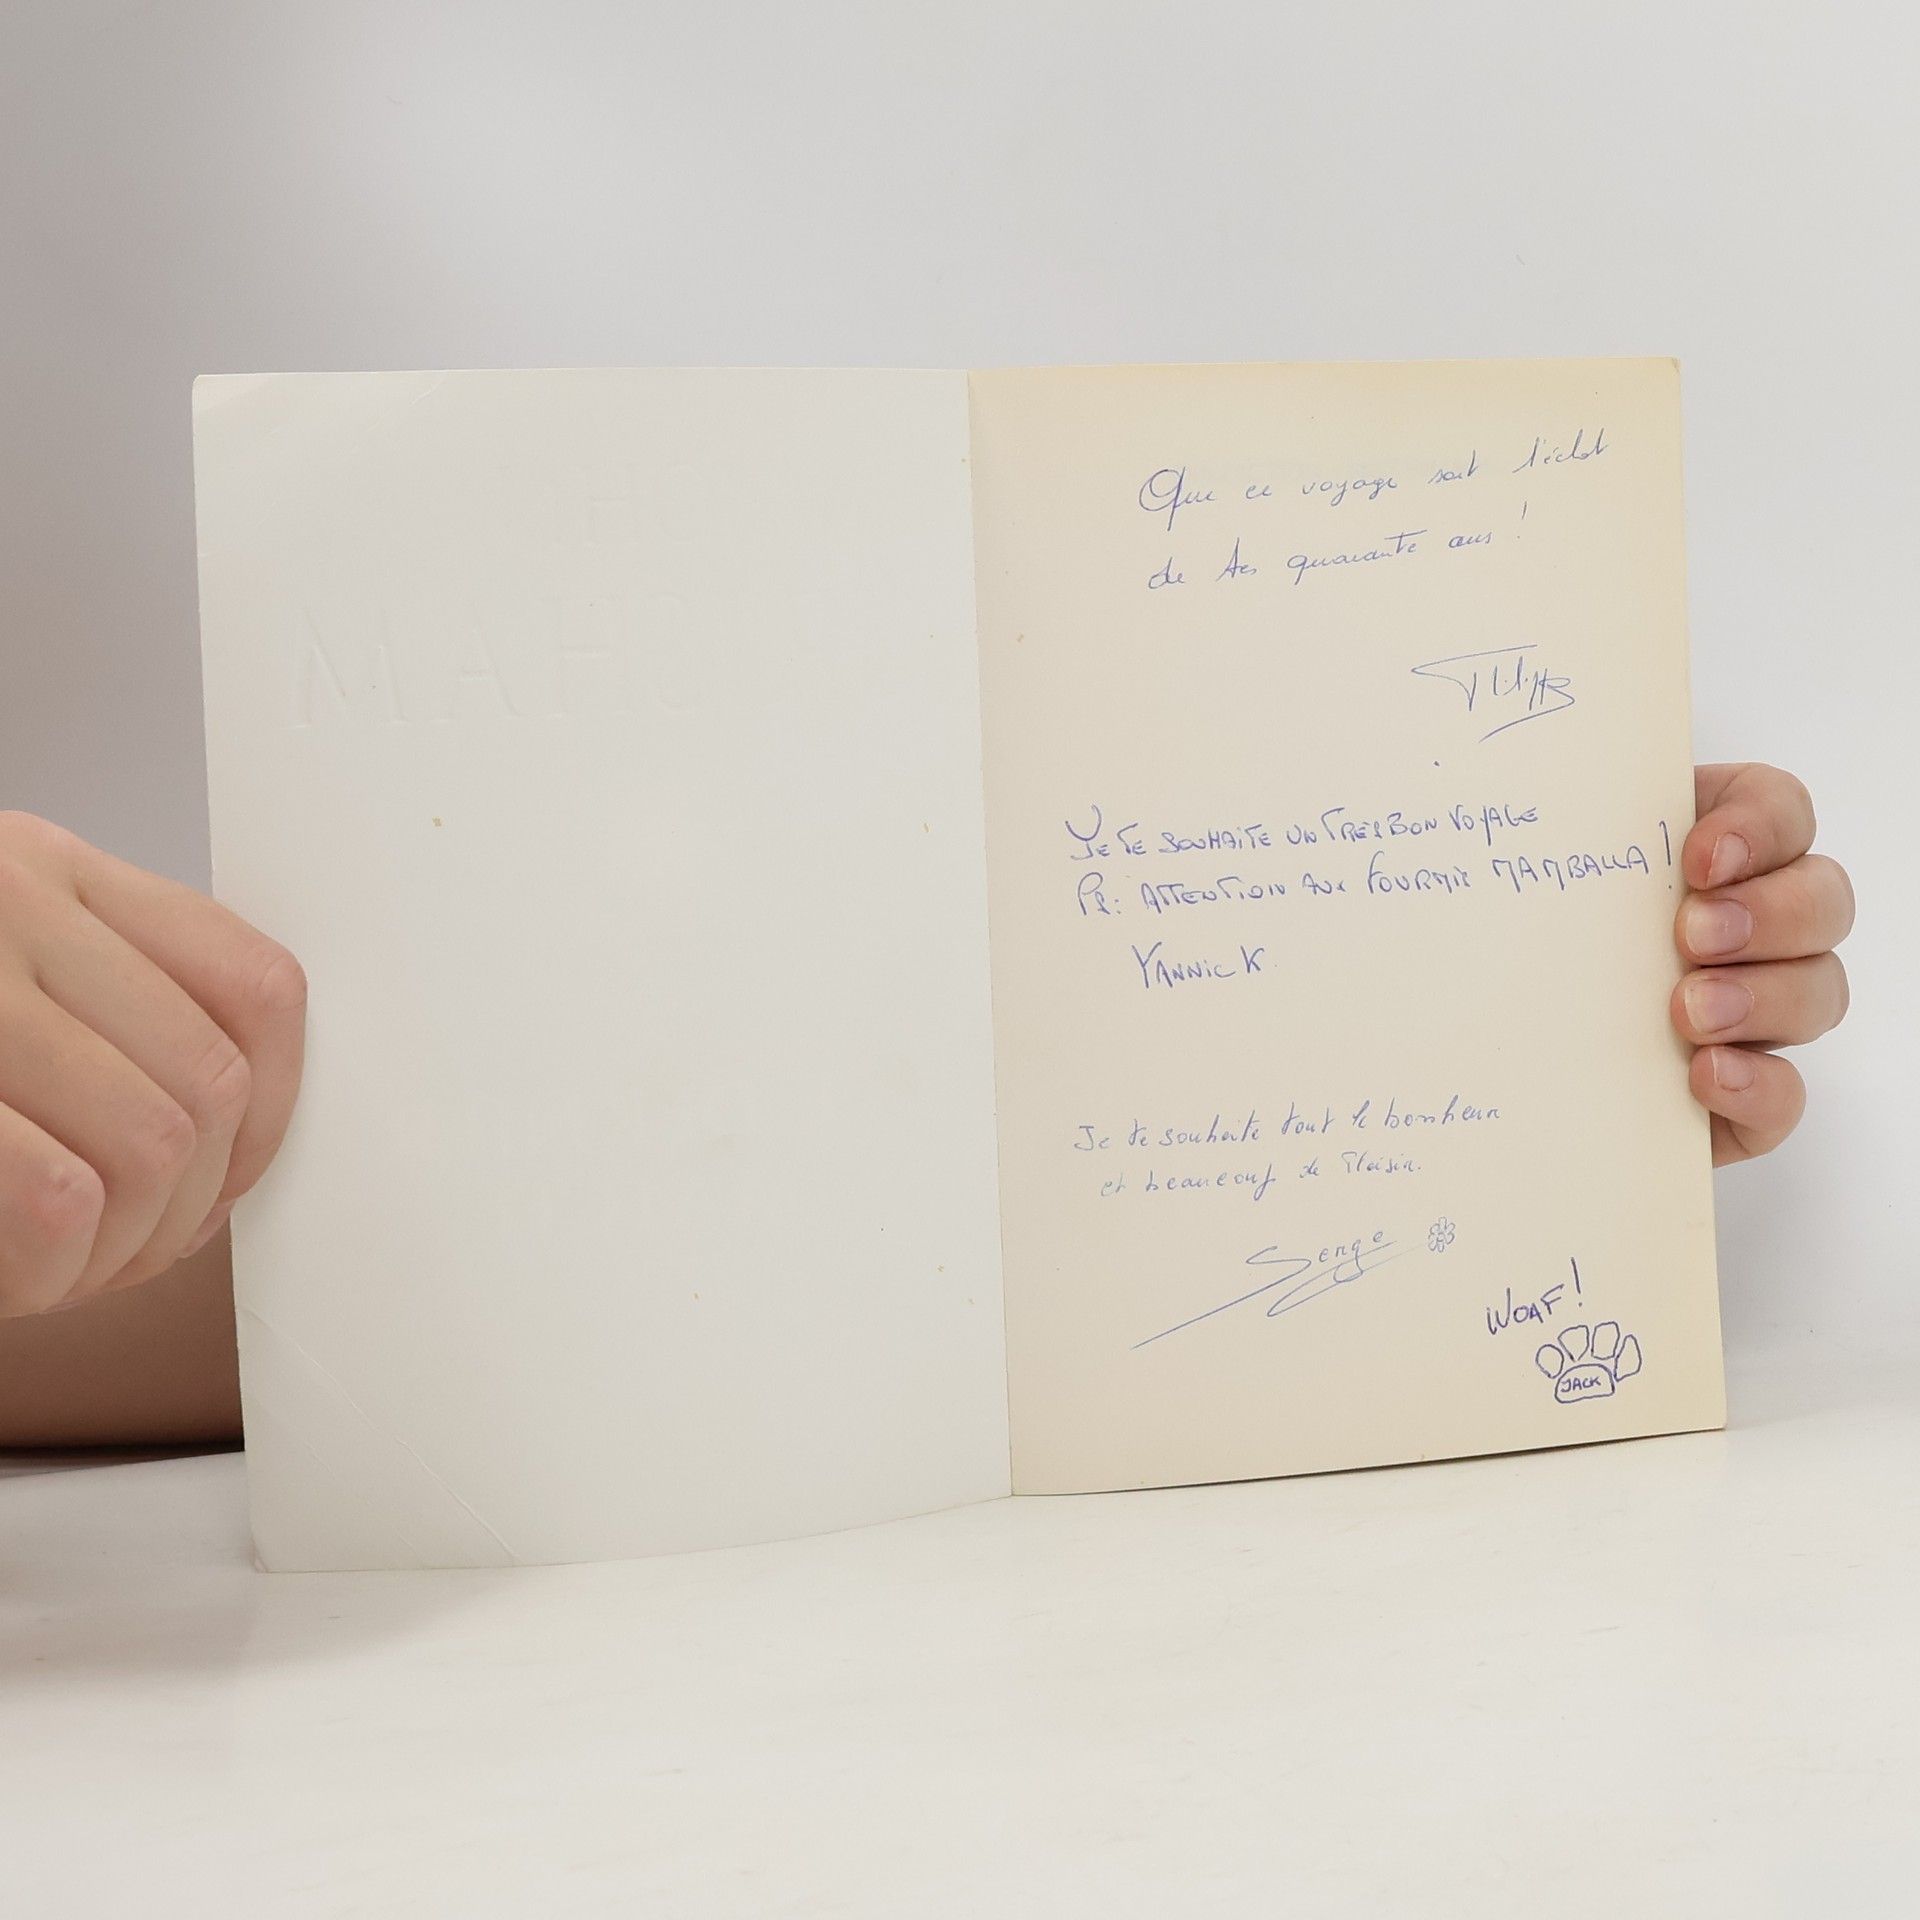 Que ce voyage soit l'éclat
de tes quarante ans !
JE TE SOUHAITE UN TRÈS BON VOYAGE
PS: ATTENTION AUX FOURMIS MAMBALLA !
YANNICK.
Je te souhaite tout le bonheur
et beaucoup de Plaisir.
Serge
WOAF!
JACK